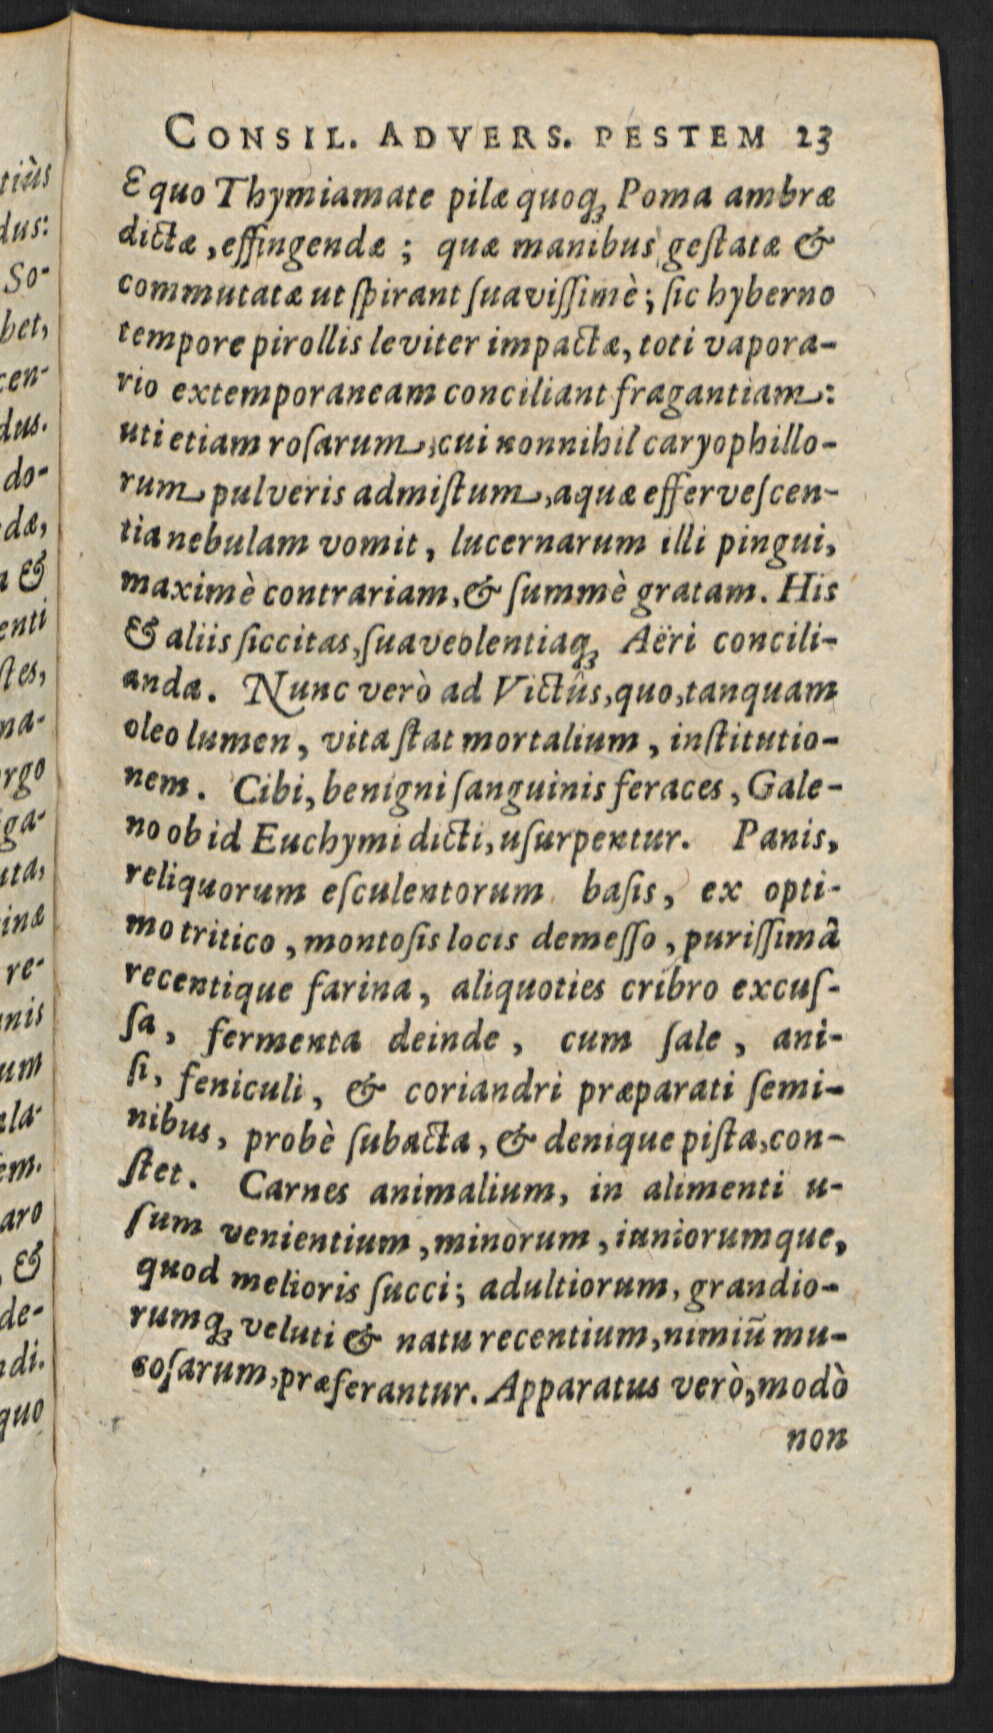 CONSIL. ADVERS. PESTEM 23
E quo Thymiamate pilæ quoq; Poma ambræ
dictæ, effingendæ; quæ manibus geſtatæ &
commutatæ ut ſpirant ſuaviſſimè; ſic hyberno
tempore pirollis leviter impactæ, toti vapora-
rio extemporaneam conciliant fragantiam:
uti etiam roſarum, cui nonnihil caryophillo-
rum pulveris admiſtum, aquæ efferveſcen-
tia nebulam vomit, lucernarum illi pingui,
maximè contrariam, & ſummè gratam. His
& aliis ſiccitas, ſuaveolentiaq; Aëri concili-
anda. Nunc verò ad Victûs, quo, tanquam
oleo lumen, vita ſtat mortalium, inſtitutio-
nem. Cibi, benigni ſanguinis feraces, Gale-
no ob id Euchymi dicti, uſurpentur. Panis,
reliquorum eſculentorum baſis, ex opti-
mo tritico, montoſis locis demeſſo, puriſſimâ
recentique farina, aliquoties cribro excuſ-
ſa, fermenta deinde, cum ſale, ani-
ſi, feniculi, & coriandri præparati ſemi-
nibus, probè ſubacta, & denique piſta, con-
ſtet. Carnes animalium, in alimenti u-
ſum venientium, minorum, iuniorumque,
quod melioris ſucci; adultiorum, grandio-
rumq; veluti & natu recentium, nimiū mu-
coſarum, præferantur. Apparatus verò, modò
non
tiùs
dus:
So-
bet,
cen-
dus.
do-
dæ,
a &
enti
ſtes,
na-
rgo
iga-
uta,
inæ
re-
nis
um
ula-
em.
aro
, &
de-
ndi.
quo